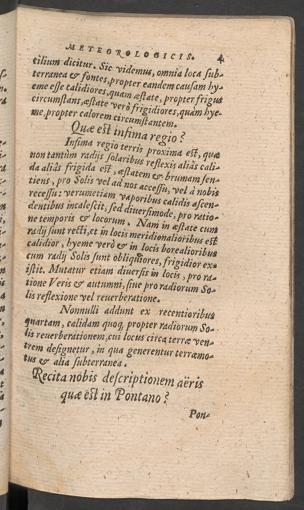 METEOROLOGICIS. 4
tilium dicitur. Sic videmus, omnia loca sub-
terranea & fontes, propter eandem causam hy-
eme esse calidiores, quam æstate, propter frigus
circumstans, æstate verò frigidiores, quàm hye-
me, propter calorem circumstantem.
Quæ est infima regio?
Infima regio terris proxima est, quæ
non tantùm radijs solaribus reflexis aliàs cali-
da aliàs frigida est, æstatem & brumam sen-
tiens, pro Solis vel ad nos accessu, vel à nobis
recessu: verumetiam vaporibus calidis ascen-
dentibus incalescit, sed diversimode, pro ratio-
ne temporis & locorum. Nam in æstate cum
radij sunt recti, et in locis meridionalioribus est
calidior, hyeme verò & in locis borealioribus
cum radij Solis sunt obliquiores, frigidior ex-
istit. Mutatur etiam diversis in locis, pro ra-
tione Veris & autumni, sive pro radiorum So-
lis reflexione vel reverberatione.
Nonnulli addunt ex recentioribus
quartam, calidam quoq, propter radiorum So-
lis reverberationem, cui locus circa terræ ven-
trem designetur, in qua generentur terramo-
tus & alia subterranea.
Recita nobis descriptionem aëris
quæ est in Pontano?
Pon-